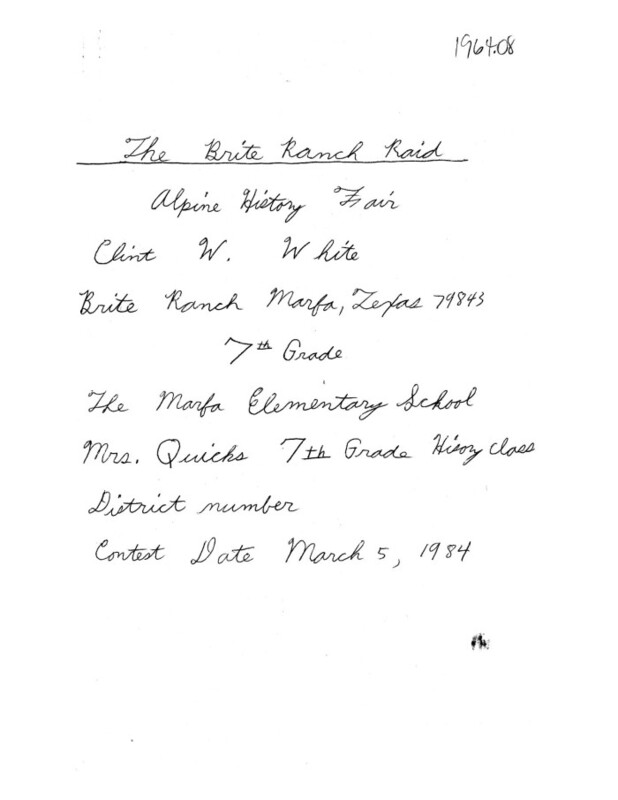 1964.08
The Brite Ranch Raid
Alpine History Fair
Clint W. White
Brite Ranch Marfa, Texas 79843
7th Grade
The Marfa Elementary School
Mrs. Quicks 7th Grade Hisory class
District number
Contest Date March 5, 1984